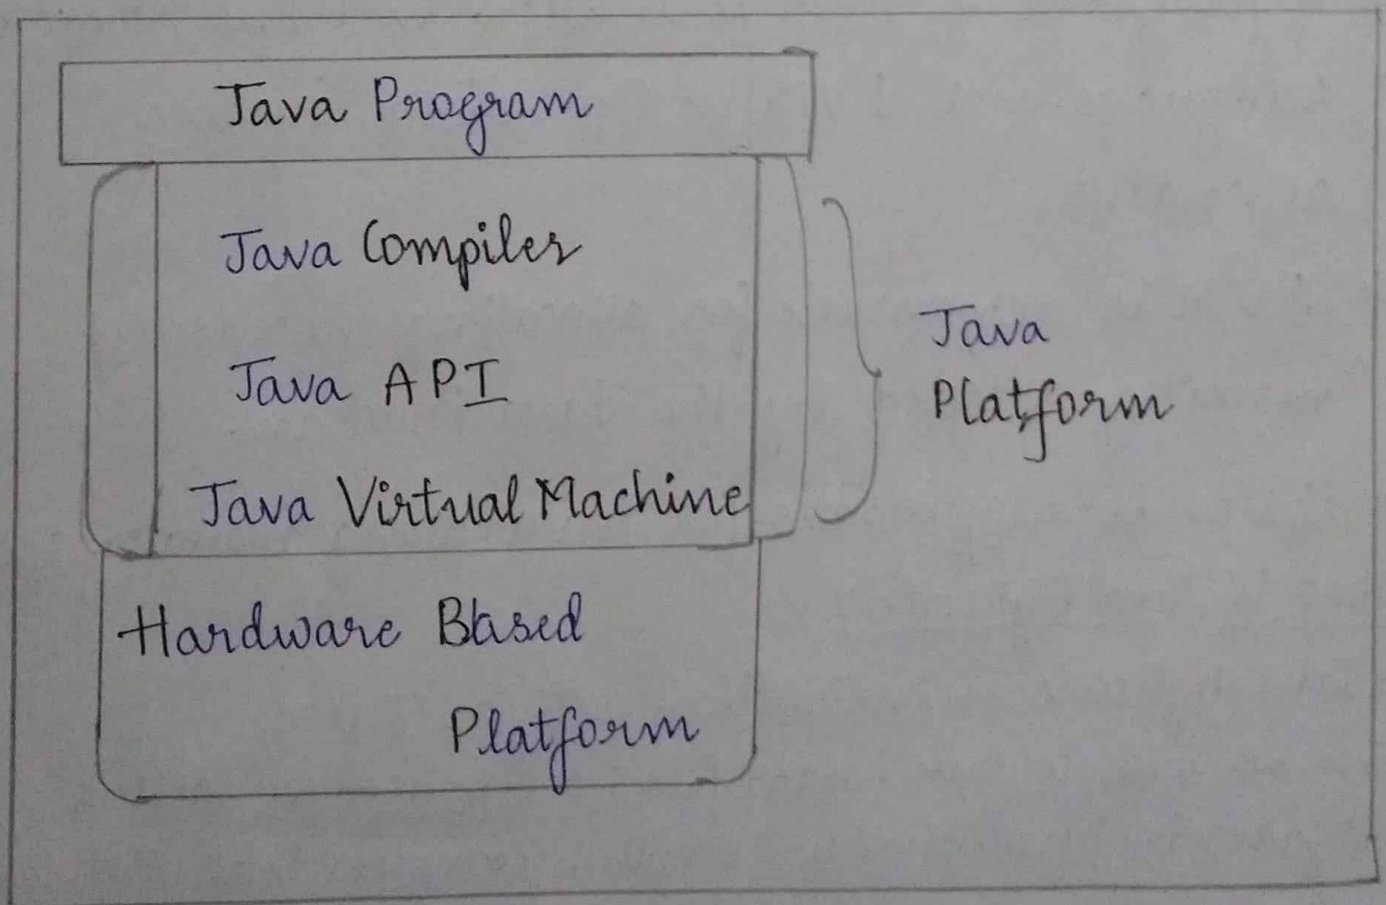 Java Program
Java Compiler
Java API
Java Virtual Machine
Java
Platform
Hardware Based
Platform